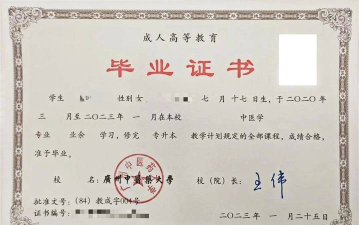 成人高等教育
毕业证书
学生 性别女， 七月十七日生，于二〇二〇年
三月至二〇二三年一月在本校 中医学
专业 业余 学习，修完 专升本 教学计划规定的全部课程，成绩合格，
准予毕业。
校 名：廣州中醫藥大學 校（院）长：王伟
批准文号：（84）教成字004号
证书编号：
二〇二三年 一 月 二十五 日